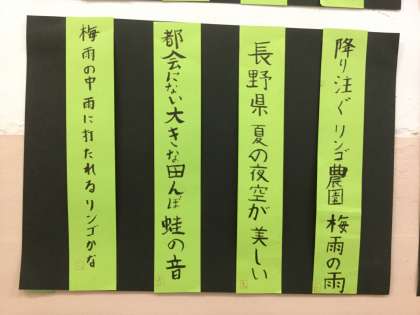 降り注ぐ リンゴ農園 梅雨の雨
長野県 夏の夜空が 美しい
都会にない 大きな田んぼ 蛙の音
梅雨の中 雨に打たれる リンゴかな